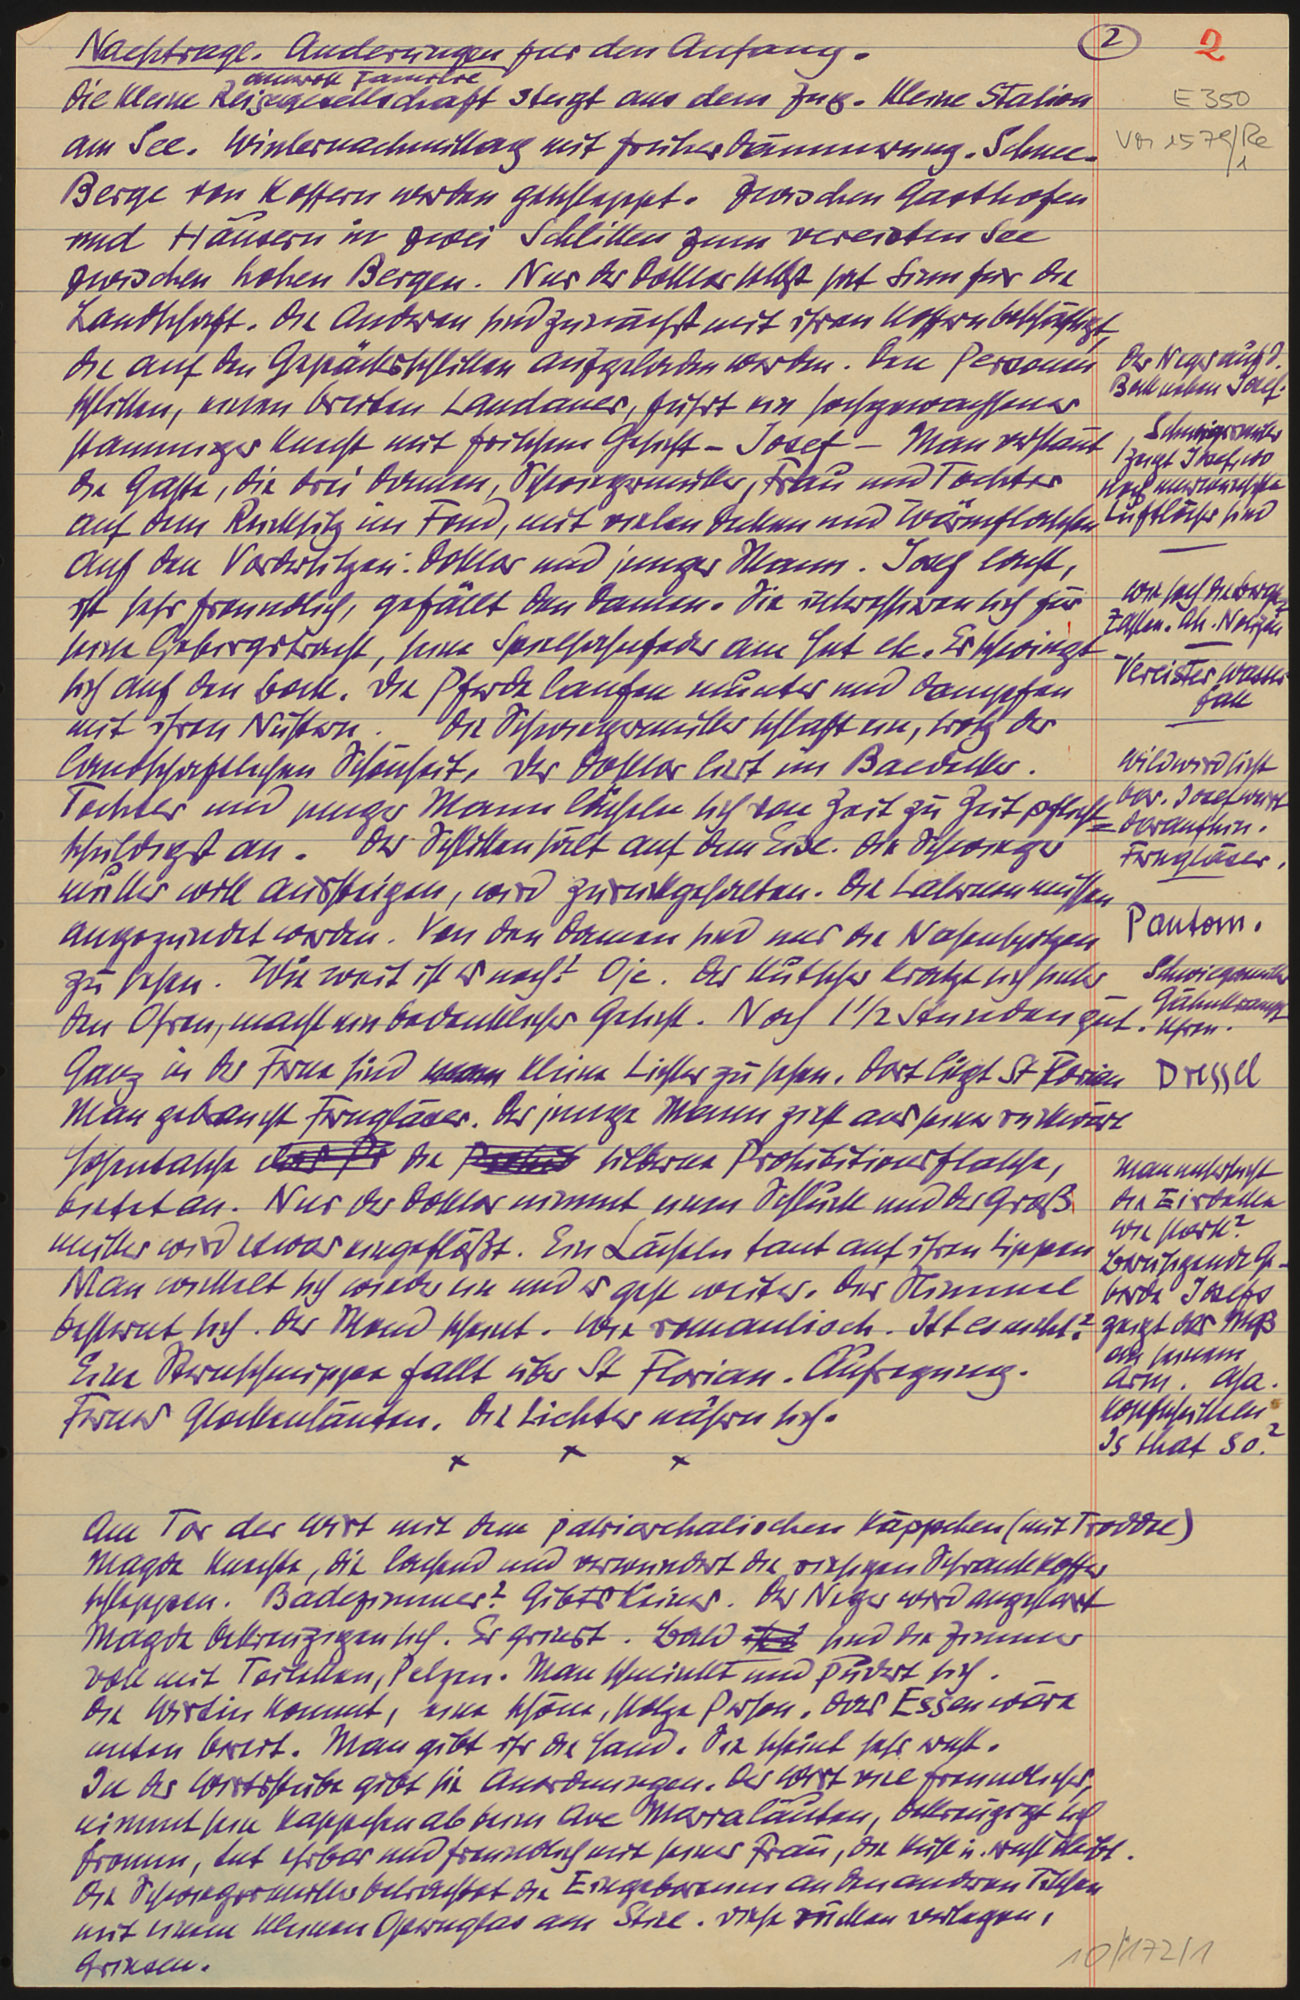 Nachträge. Änderungen für den Anfang.
2
2
E 350
amerik Familie
Die kleine Reisegesellschaft steigt aus dem Zug. Kleine Station
am See. Winternachmittag mit früher Dämmerung. Schnee.
Berge von Koffern werden geschleppt. Zwischen Gasthöfen
und Häusern in zwei Schlitten zum vereisten See
zwischen hohen Bergen. Nur der Doktor selbst hat Sinn für die
Landschaft. Die Anderen sind zunächst mit ihren Koffern beschäftigt,
die auf den Gepäckschlitten aufgeladen werden. Den Personen
schlitten, einen breiten Landauer, führt ein hochgewachsener
stämmiger Knecht mit frischem Gesicht – Josef – Man verstaut
die Gäste, die drei Damen, Schwiegermutter, Frau und Tochter
auf dem Rücksitz im Fond, mit vielen Decken und Wärmflaschen
Auf den Vordersitzen: Doktor und junger Mann. Josef lacht,
ist sehr freundlich, gefällt den Damen. Sie interessieren sich für
seine Gebirgstracht, seine Spielhahnfeder am Hut etc. Er schwingt
sich auf den Bock. Die Pferde laufen munter und dampfen
mit ihren Nüstern. Die Schwiegermutter schläft ein, trotz der
landschaftlichen Schönheit. Der Doktor liest im Baedeker.
Tochter und junger Mann lächeln sich von Zeit zu Zeit pflicht=
schuldigst an. Der Schlitten hält auf dem Eise. Die Schwieger
mutter will aussteigen, wird zurückgehalten. Die Laternen müssen
angezündet werden. Von den Damen sind nur die Nasenspitzen
zu sehen. Wie weit ist es noch? Oje. Der Kutscher kratzt sich hinter
den Ohren, macht ein bedenkliches Gesicht. Noch 1 1/2 Stunden gut.
Ganz in der Ferne sind kleine Lichter zu sehen. Dort liegt St Florian
Man gebraucht Ferngläser. Der junge Mann zieht aus seiner rückwärt
Hosentasche die silberne Prohibitionsflasche,
bietet an. Nur der Doktor nimmt einen Schluck und der Groß
mutter wird etwas eingeflößt. Ein Lächeln taut auf ihren Lippen
Man wickelt sich wieder ein und es geht weiter. Der Himmel
besternt sich. Der Mond scheint. Wie romantisch. Ist es nicht?
Eine Sternschnuppe fällt über St Florian. Aufregung.
Fernes Glockenläuten. Die Lichter nähern sich.
x x x
Am Tor der Wirt mit dem patriarchalischen Käppchen (mit Troddel)
Mägde Knechte, die lachend und verwundert die riesigen Schrankkoffer
schleppen. Badezimmer? Gibts keines. Der Neger wird angestarrt
Mägde bekreuzigen sich. Er grinst. Bald sind die Zimmer
voll mit Toiletten, Pelzen. Man schminkt und pudert sich.
Die Wirtin kommt, eine schöne, stolze Person. Das Essen wäre
unten bereit. Man gibt ihr die Hand. Sie scheint sehr ernst.
In der Wirtsstube gibt sie Anordnungen. Der Wirt viel freundlicher,
nimmt sein Käppchen ab beim Ave Maria läuten, bekreuzigt sich
fromm, tut ehrbar und freundlich mit seiner Frau, die kühl u. ernst bleibt.
Die Schwiegermutter betrachtet die Eingeborenen an den anderen Tischen
mit einem kleinen Opernglas am Stiel. Diese rücken verlegen,
grinsen.
Der Neger auf d.
Bock neben Josef.
Schwiegermutter
zeigt Josef, wo
noch
Luftlöcher sind
Wie hoch die Berge?
Zahlen. Ah. Notizen
Vereister Wasser
fall
Wild wird sicht
bar. Josef weist
daraufhin.
Ferngläser.
Pantom.
Schwiegermutter
Gähnkrampf
Uhren.
Dressel
Man untersucht
die Eisdecke
wie stark?
Beruhigende Ge-
bärde Josefs
zeigt das Maß
an seinem
Arm. Aha.
Kopfschütteln
Is that so?
10/172/1